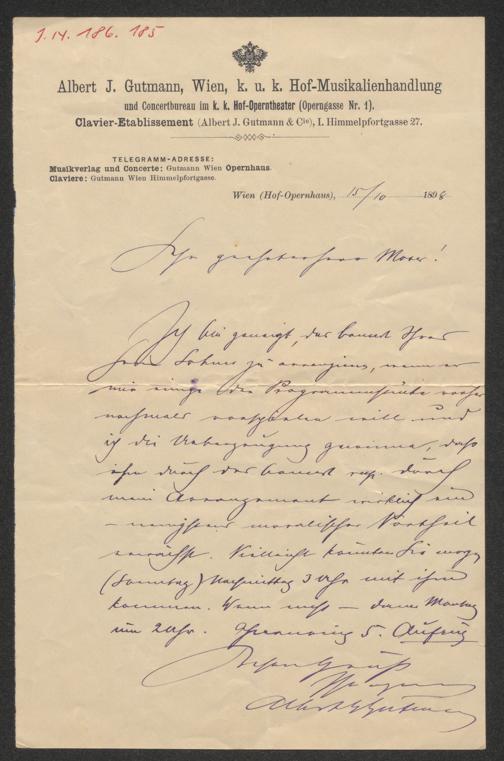 J.N. 186.185
Albert J. Gutmann, Wien, k. u. k. Hof-Musikalienhandlung
und Concertbureau im k. k. Hof-Operntheater (Operngasse Nr. 1).
Clavier-Etablissement (Albert J. Gutmann & Cie), I. Himmelpfortgasse 27.
TELEGRAMM-ADRESSE:
Musikverlag und Concerte: Gutmann Wien Opernhaus.
Claviere: Gutmann Wien Himmelpfortgasse.
Wien (Hof-Opernhaus), 15/10 1898
Sehr geehrter Herr Moser!
Ich bin geneigt, das Concert Ihres
Herrn Sohnes zu arrangiren, wenn er
mir einige der Programmstücke vorher
nochmals vorspielen will und
ich die Ueberzeugung gewinne, dass
ihm durch das Concert resp. durch
mein Arrangement wirklich ein
– wenigstens moralischer Vortheil
erwächst. Vielleicht könnten Sie morgen
(Sonntag) Nachmittag 3 Uhr mit ihm
kommen. Wenn nicht – dann Montag
um 2 Uhr.
Gruss
Albert J. Gutmann